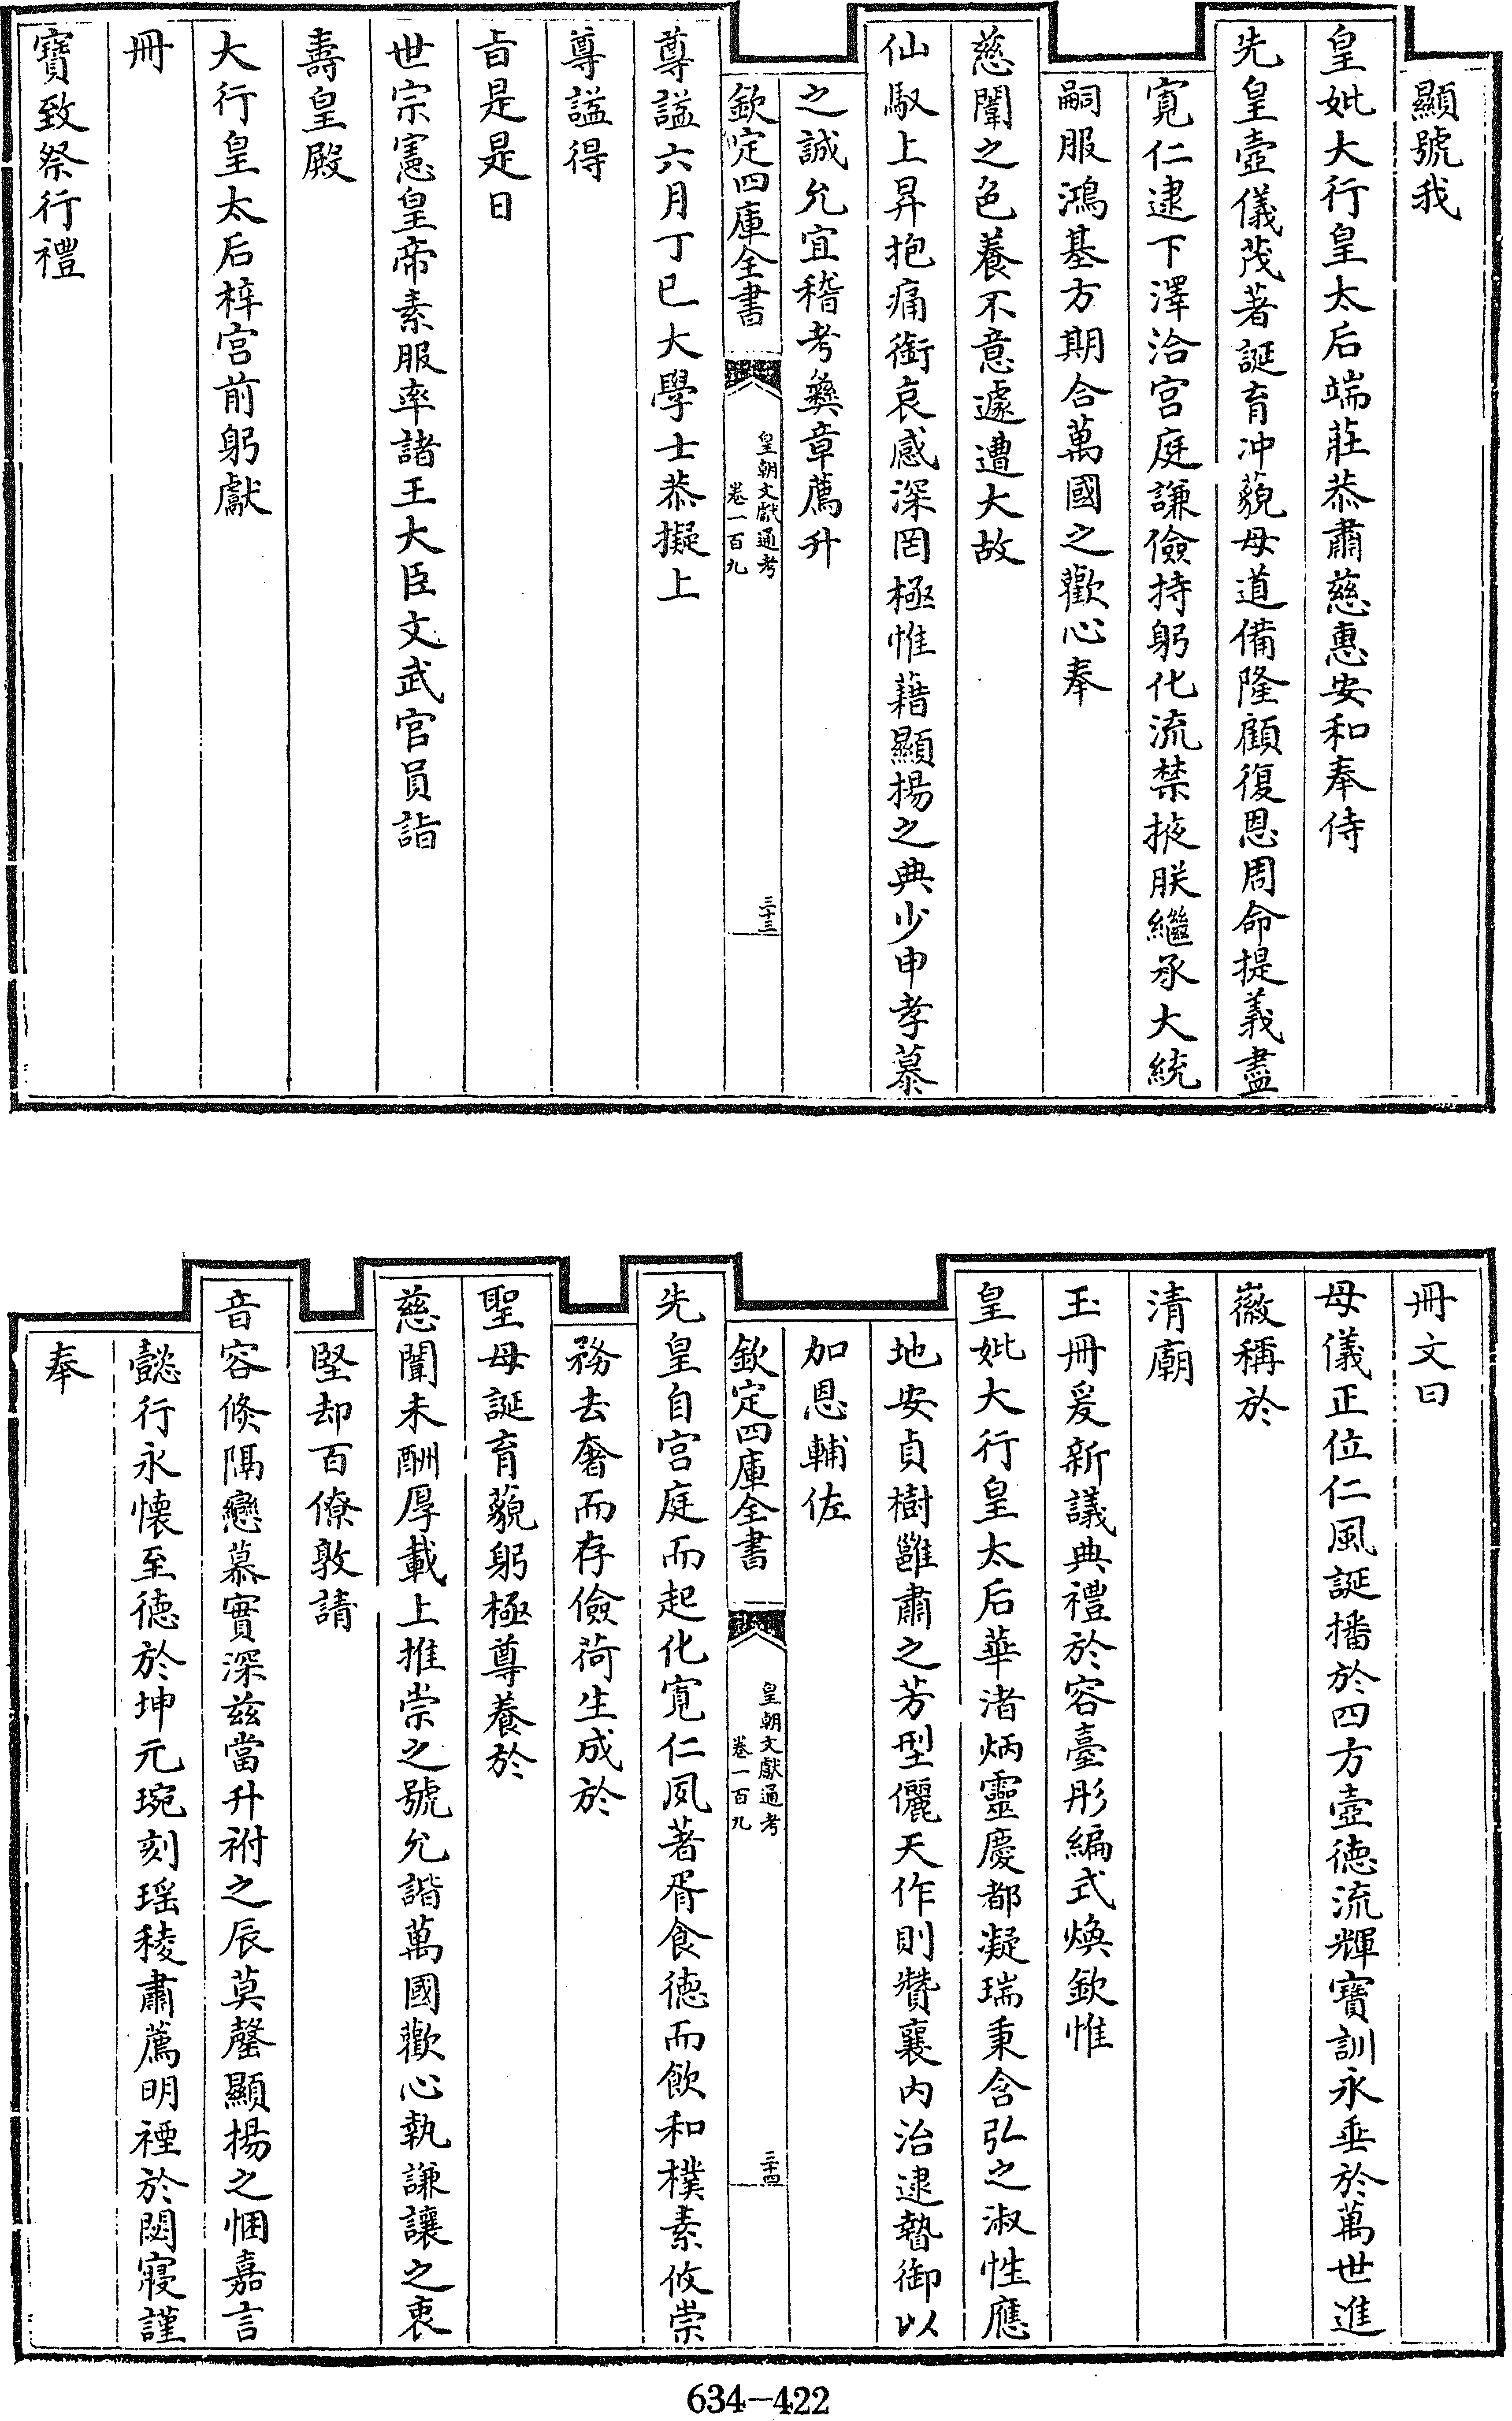 顯號我
皇妣大行皇太后端莊恭肅慈惠安和奉侍
先皇壼儀茂著誕育冲藐母道備隆顧復恩周命提義盡
寛仁逮下澤洽宫庭謙儉持躬化流禁掖朕繼承大統
嗣服鴻基方期合萬國之歡心奉
慈闈之色養不意遽遭大故
仙馭上昇抱痛銜哀感深罔極惟藉顯揚之典少申孝慕
之誠允宜稽考彝章薦升
欽定四庫全書
皇朝文獻通考
卷一百九
三十三
尊諡六月丁巳大學士恭擬上
尊諡得
㫖是是日
世宗憲皇帝素服率諸王大臣文武官員詣
壽皇殿
大行皇太后梓宫前躬獻
冊
寶致祭行禮
冊文曰
母儀正位仁風誕播於四方壼德流輝寶訓永垂於萬世進
徽稱於
清廟
玉冊爰新議典禮於容臺彤編式煥欽惟
皇妣大行皇太后華渚炳靈慶都凝瑞秉含弘之淑性應
地安貞樹雝肅之芳型儷天作則贊襄内治逮暬御以
加恩輔佐
欽定四庫全書
皇朝文獻通考
卷一百九
三十四
先皇自宫庭而起化寛仁夙著胥食德而飲和樸素攸崇
務去奢而存儉荷生成於
聖母誕育藐躬極尊養於
慈闈未酬厚載上推崇之號允諧萬國歡心執謙讓之衷
堅却百僚敦請
音容倏隔戀慕實深兹當升祔之辰莫罄顯揚之悃嘉言
懿行永懷至德於坤元琬刻瑶稜肅薦明禋於閟寢謹
奉
634-422